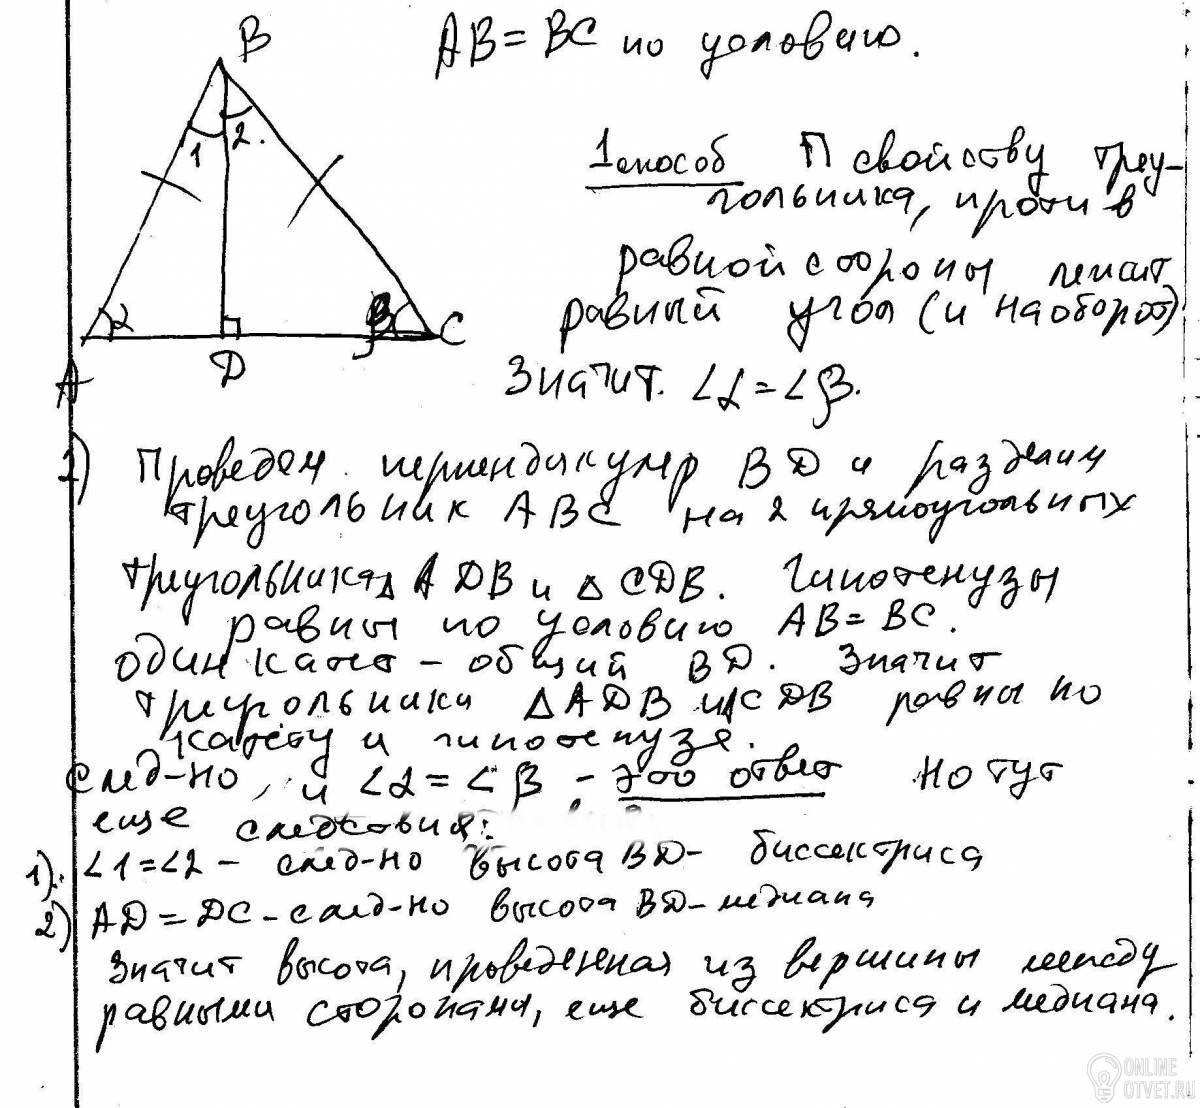 B
AB = BC по условию.
1 2.
1 способ П свойству треу-
гольника, против
равной стороны лежат
равный угол (и наоборот)
α β C
A D
Значит. ∠α = ∠β.
1) Проведем перпендикуляр BD и разделим
треугольник ABC на 2 прямоугольных
треугольника △ADB и △CDB. Гипотенузы
равны по условию AB = BC.
один катет – общий BD. Значит
треугольники △ADB и △CDB равны по
катету и гипотенузе.
след-но, и ∠α = ∠β – это ответ Но тут
еще следствия:
1). ∠1 = ∠2 – след-но высота BD – биссектриса
2) AD = DC – след-но высота BD – медиана
Значит высота, проведенная из вершины между
равными сторонами, еще биссектриса и медиана.
ONLINE
OTVET.RU